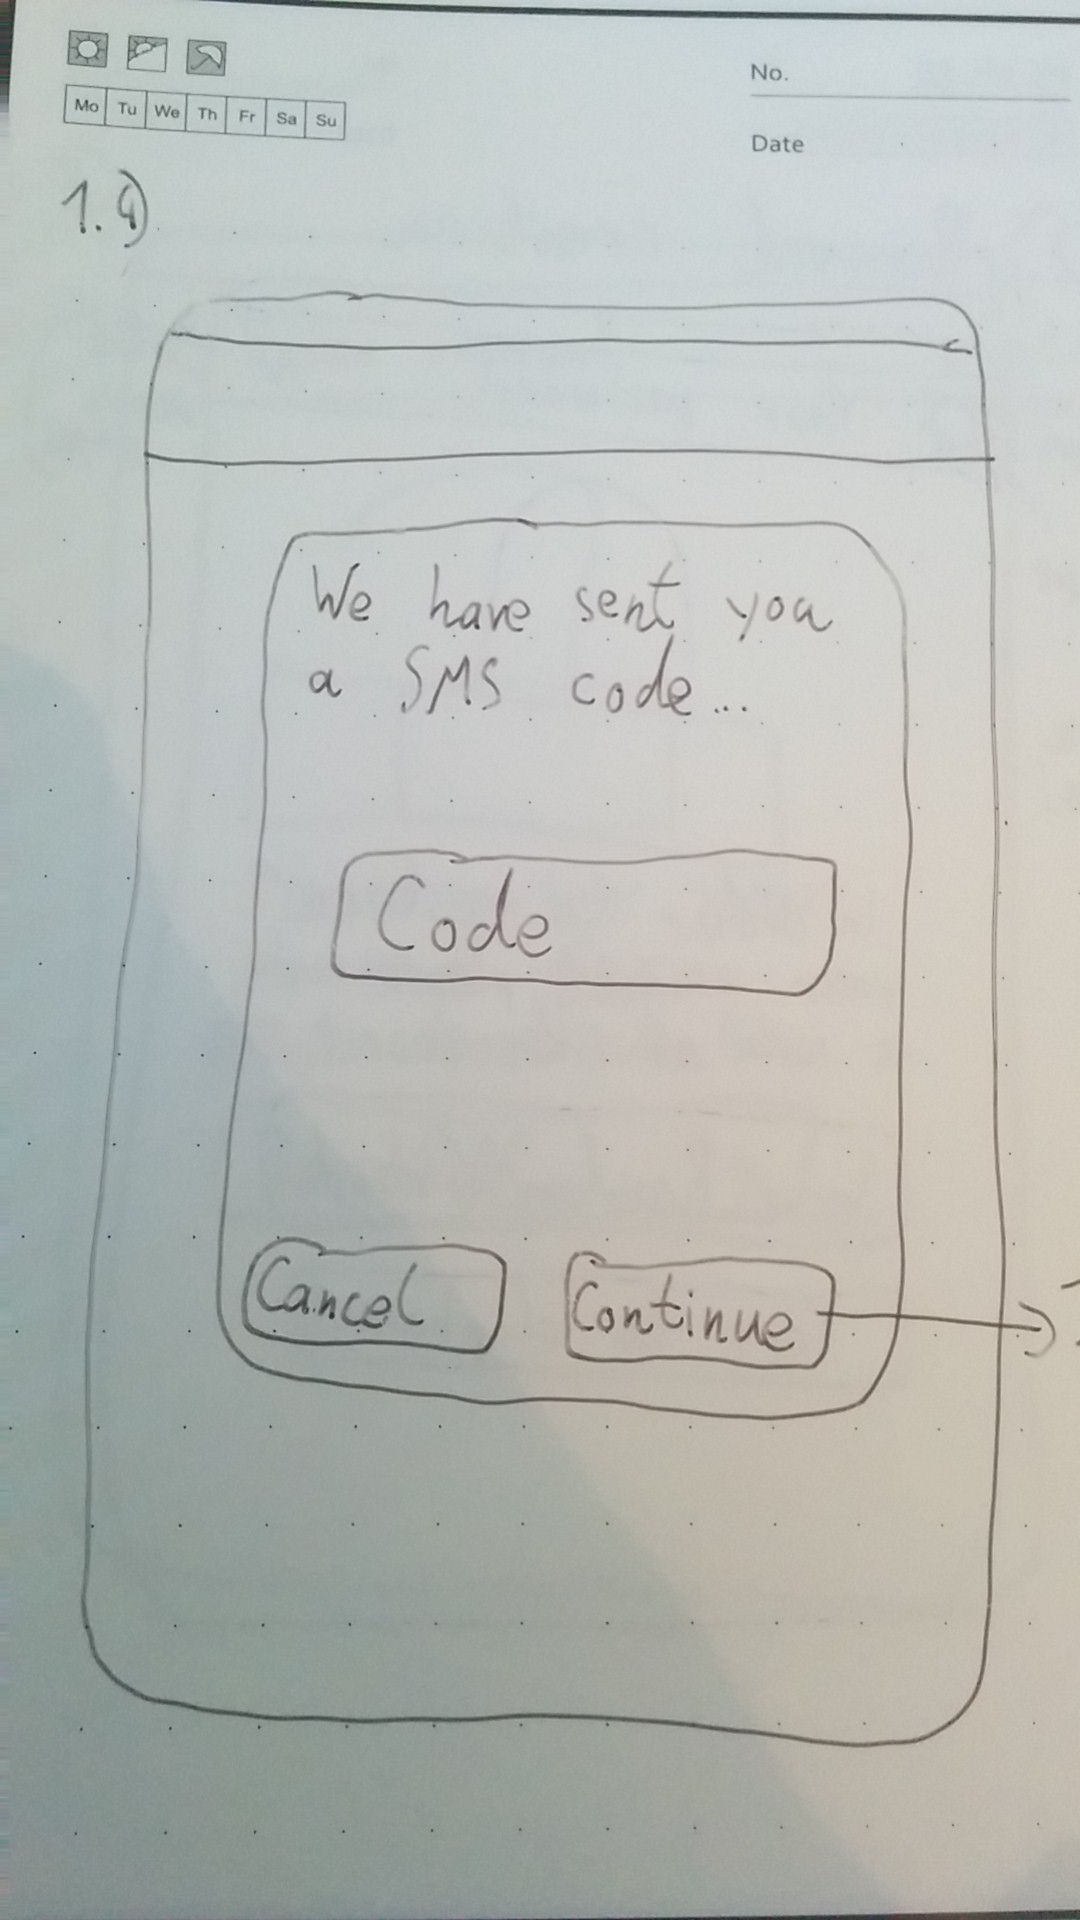 No.
Mo Tu We Th Fr Sa Su
Date
We have sent you
a SMS code...
Code
Cancel Continue